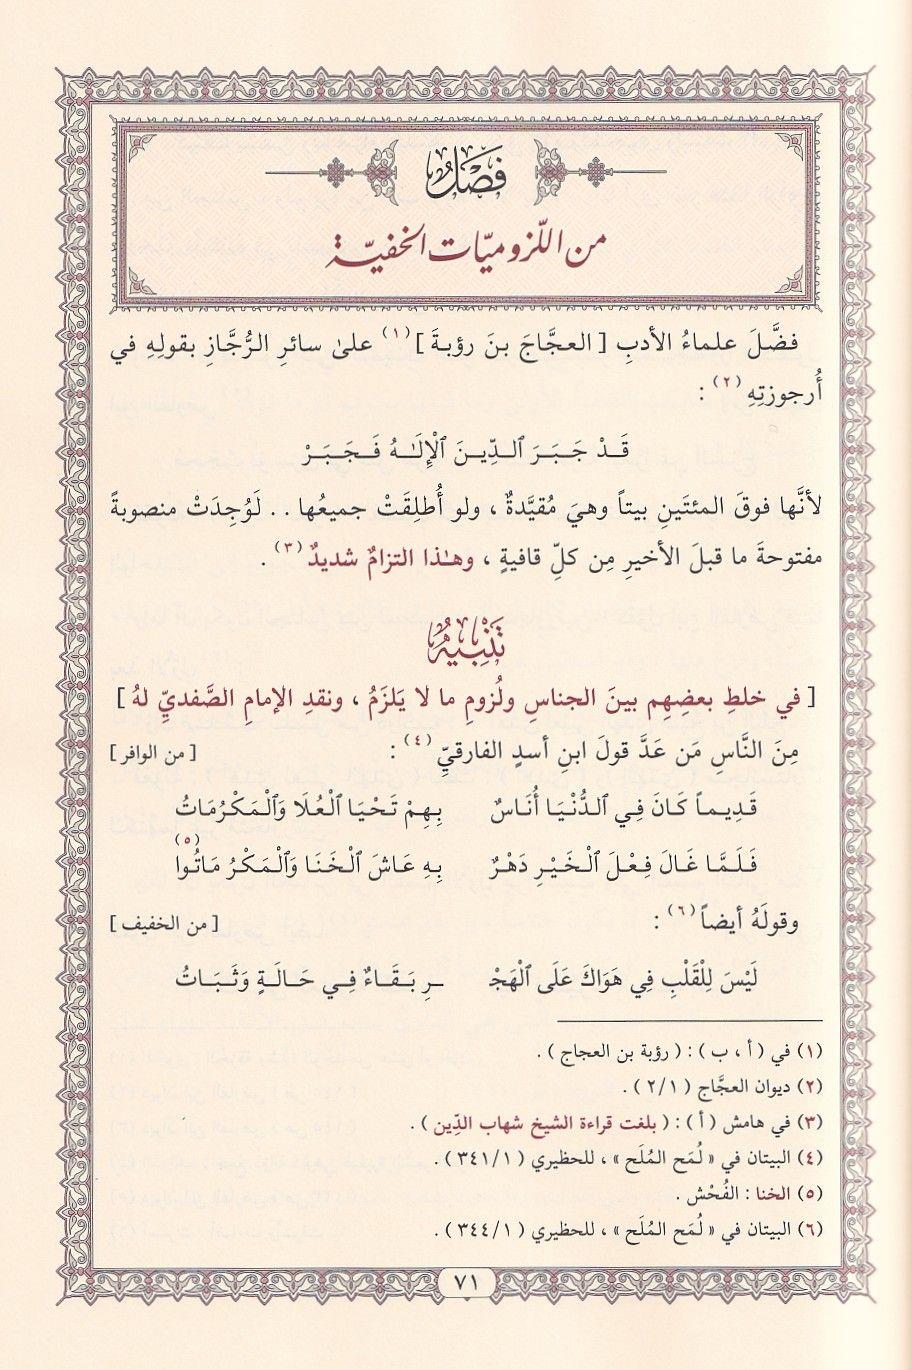 فَصْلٌ
من اللّزوميّات الخفيّة
فضَّلَ علماءُ الأدبِ [ العجَّاجَ بنَ رؤبةَ ](١) علىٰ سائرِ الرُّجَّازِ بقولِهِ في
أُرجوزتِهِ(٢) :
قَدْ جَبَرَ ٱلدِّينَ ٱلْإِلَـٰهُ فَجَبَرْ
لأنَّها فوقَ المئتَينِ بيتاً وهيَ مُقيَّدةٌ ، ولو أُطلِقَتْ جميعُها . . لَوُجِدَتْ منصوبةً
مفتوحةَ ما قبلَ الأخيرِ مِن كلِّ قافيةٍ ، وهـٰذا التزامٌ شديدٌ(٣) .
تَنْبِيهٌ
[ في خلطِ بعضِهِم بينَ الجناسِ ولُزومِ ما لا يَلزَمُ ، ونقدِ الإمامِ الصَّفديِّ لهُ ]
مِنَ النَّاسِ مَن عَدَّ قولَ ابنِ أسدٍ الفارقيِّ(٤) : [ من الوافر ]
قَدِيماً كَانَ فِي ٱلدُّنْيَا أُنَاسٌ بِهِمْ تَحْيَا ٱلْعُلَا وَٱلْمَكْرُمَاتُ
فَلَمَّا غَالَ فِعْلَ ٱلْخَيْرِ دَهْرٌ بِهِ عَاشَ ٱلْخَنَا وَٱلْمَكْرُ مَاتُوا(٥)
وقولَهُ أيضاً(٦) : [ من الخفيف ]
لَيْسَ لِلْقَلْبِ فِي هَوَاكَ عَلَى ٱلْهَجْـ ـرِ بَقَاءٌ فِي حَالَةٍ وَثَبَاتُ
(١) في ( أ ، ب ) : ( رؤبة بن العجاج ) .
(٢) ديوان العجَّاج ( ٢/١ ) .
(٣) في هامش ( أ ) : ( بلغت قراءة الشيخ شهاب الدِّين ) .
(٤) البيتان في « لُمَح المُلَح » ، للحظيري ( ٣٤١/١ ) .
(٥) الخنا : الفُحْش .
(٦) البيتان في « لُمَح المُلَح » ، للحظيري ( ٣٤٤/١ ) .
٧١